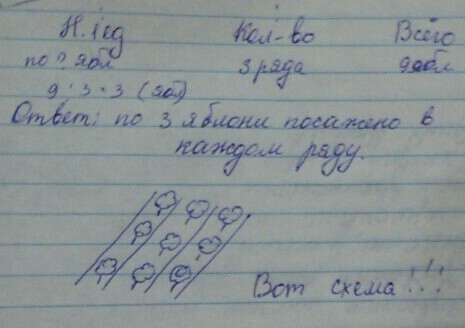 Н. 1 ед Кол-во Всего
по ? ябл 3 ряда 9 ябл
9 : 3 = 3 (ябл)
Ответ: по 3 яблони посажено в
каждом ряду.
Вот схема!!!